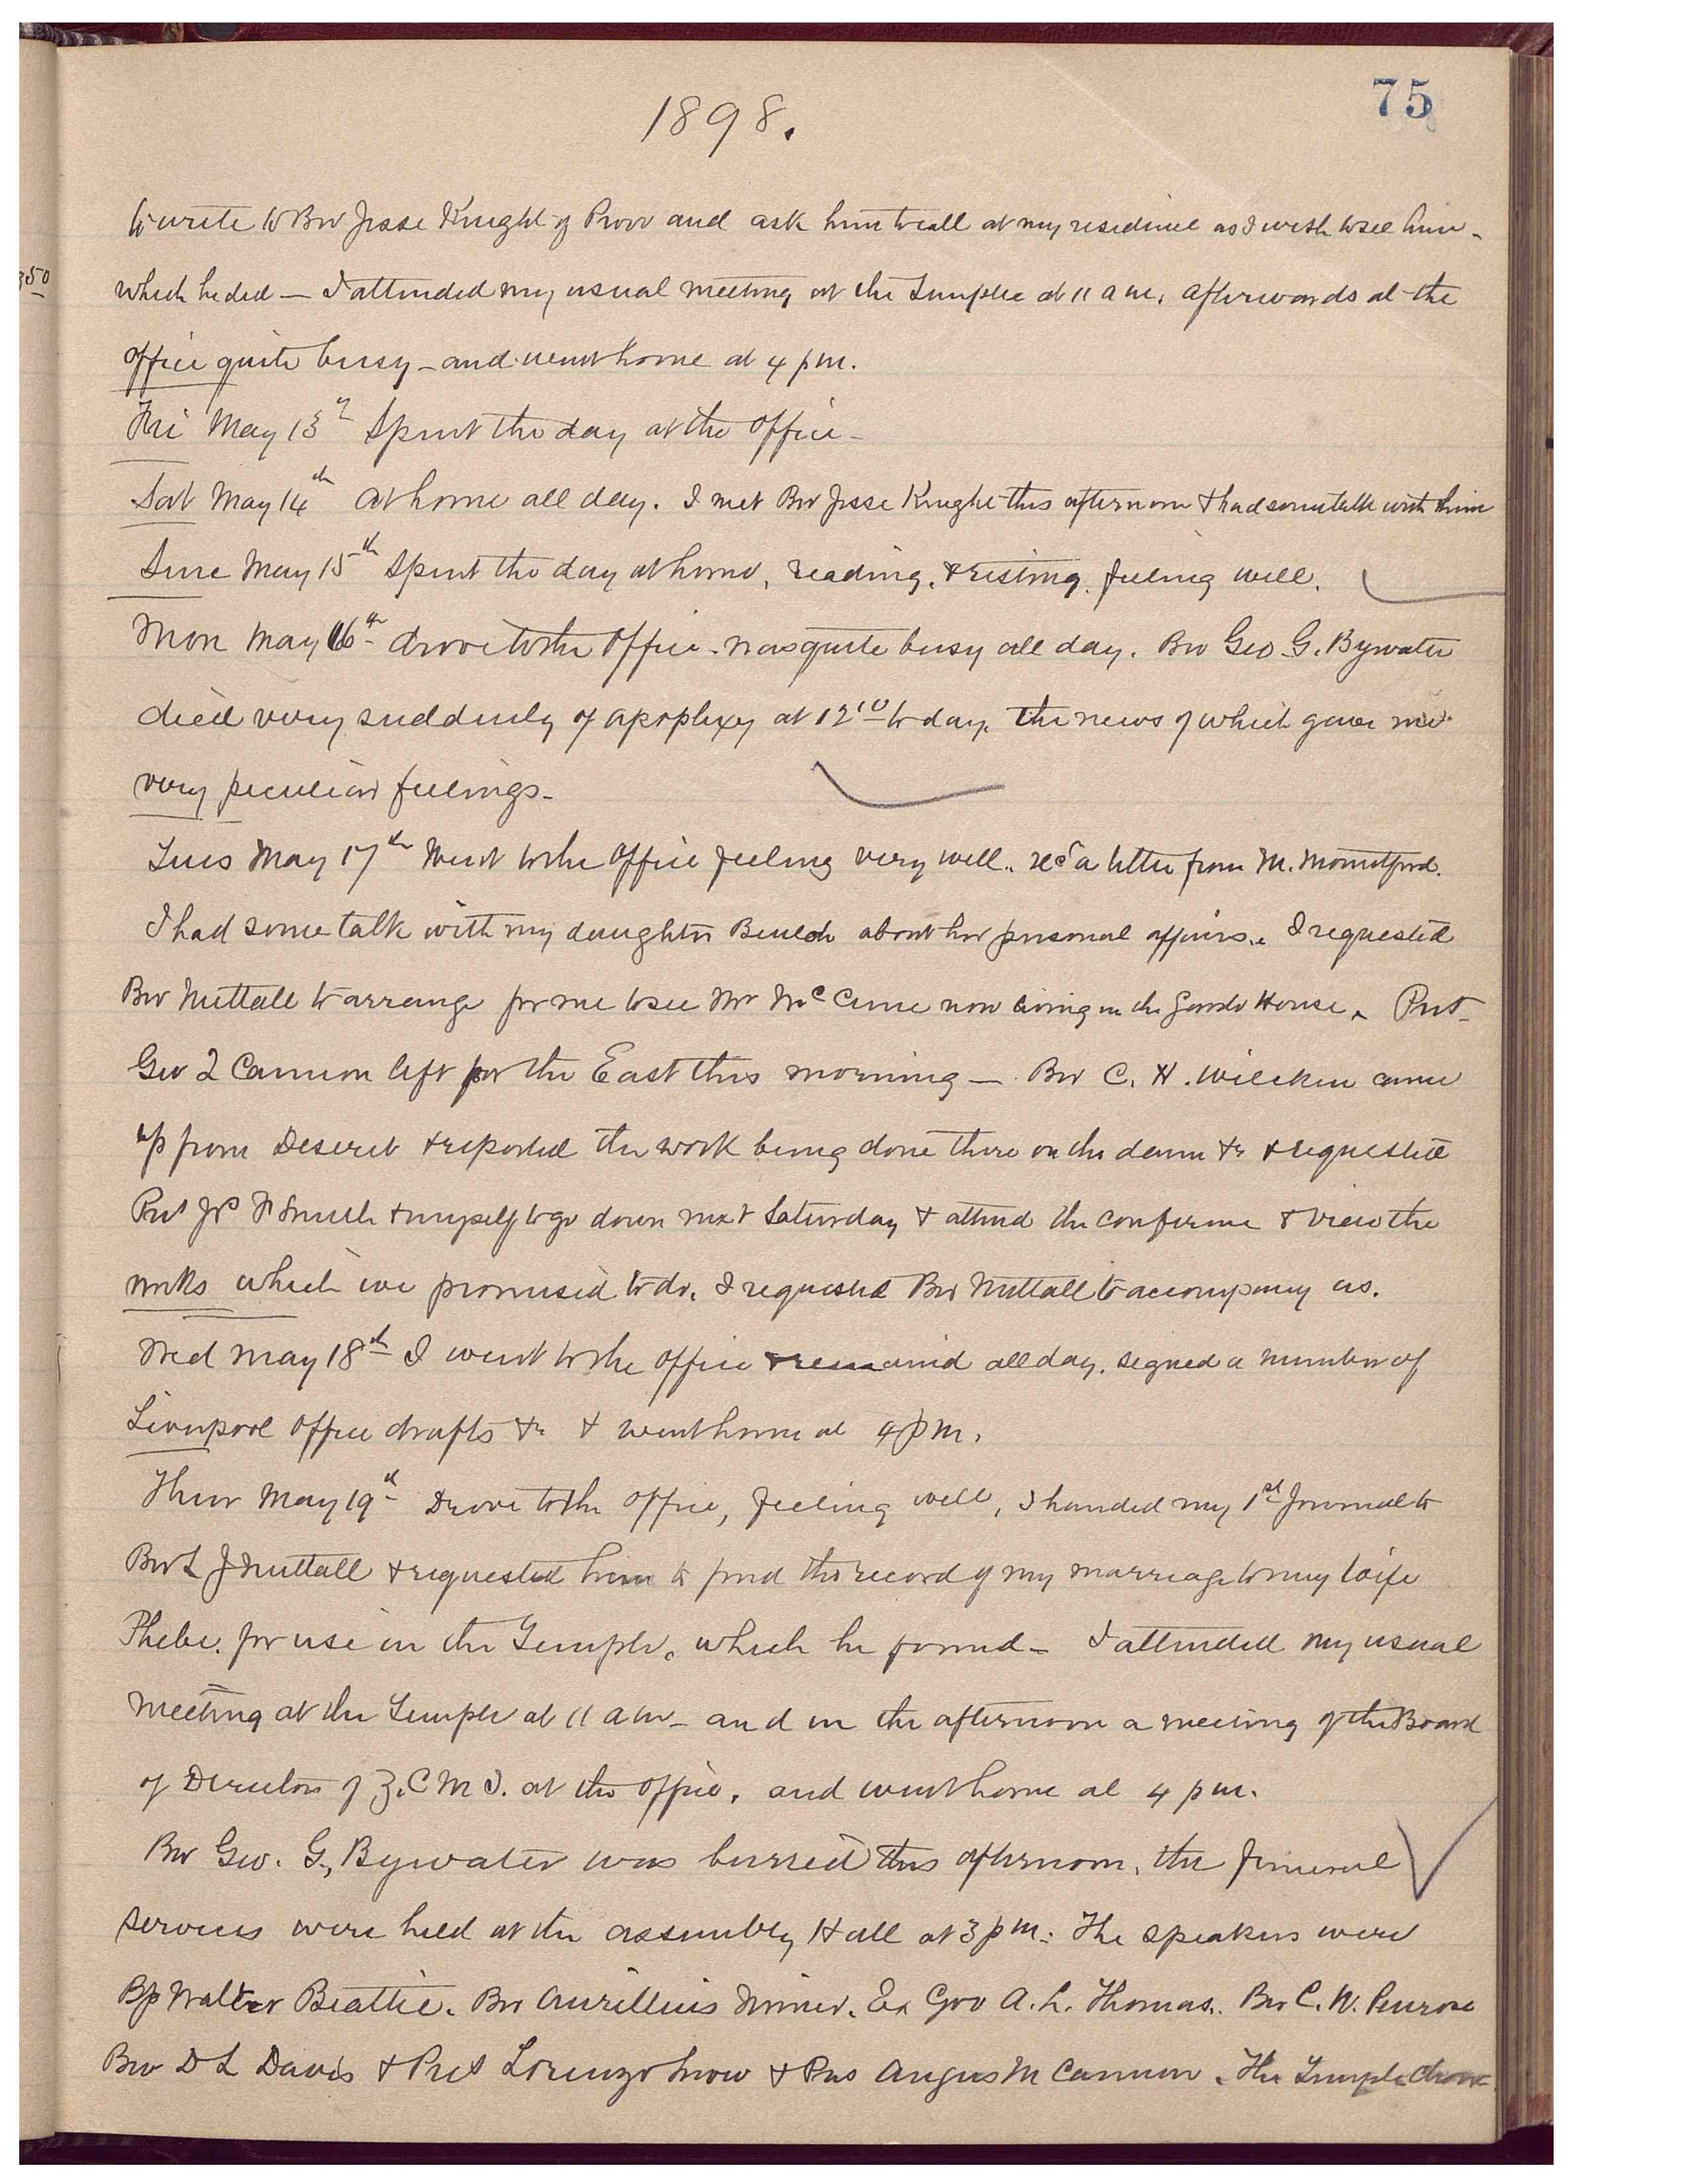 75
1898.
to write to Bro Jesse Knight of Provo and ask him to call at my residence as I wish to see him -
which he did — I attended my usual meeting at the Temple at 11 a m, afterwards at the
350
office quite busy - and went home at 4 p m.
Fri May 13th Spent the day at the office -
Sat May 14th at home all day. I met Bro Jesse Knight this afternoon & had some talk with him
Sune May 15th Spent the day at home, reading, & resting. feeling well.
Mon May 16th drove to the office - was quite busy all day. Bro Geo G. Bywater
died very suddenly of apoplexy at 12 10 to day, the news of which gave me
very peculiar feelings -
Tues May 17th Went to the Office feeling very well.. recd a letter from M. Mountford.
I had some talk with my daughter Beulah about her personal affairs.. I requested
Bro Nuttall to arrange for me to see Mr McCune now living in the Gardo House. Prest
Geo Q Cannon left for the East this morning — Bro C. H. Wilcken came
up from Deseret & reported the work being done there on the dam &c & requested
Prest Jos F Smith & myself to go down next Saturday & attend the conference & view the
works which we promised to do. I requested Bro Nuttall to accompany us.
Wed May 18th I went to the office & remained all day. signed a number of
Liverpool Office drafts &c & went home at 4 P m.
Thur May 19th Drove to the office, feeling well, I handed my 1st Journal to
Bro L J Nuttall & requested him to find the record of my marriage to my wife
Phebe. for use in the Temple. which he found - I attended my usual
meeting at the Temple at 11 a m - and in the afternoon a meeting of the Board
of Directors of Z. C M I. at the office. and went home at 4 p m.
Bro Geo. G, Bywater was burried this afternoon, the funeral
services were held at the assembly Hall at 3 p m. The speakers were
Bp Walter Beattie. Bro Aurillius Miner. Ex Gov A. L. Thomas. Bro C. W. Penrose
Bro D L Davis & Prest Lorenzo Snow & Pres Angus M Cannon. The Temple choir